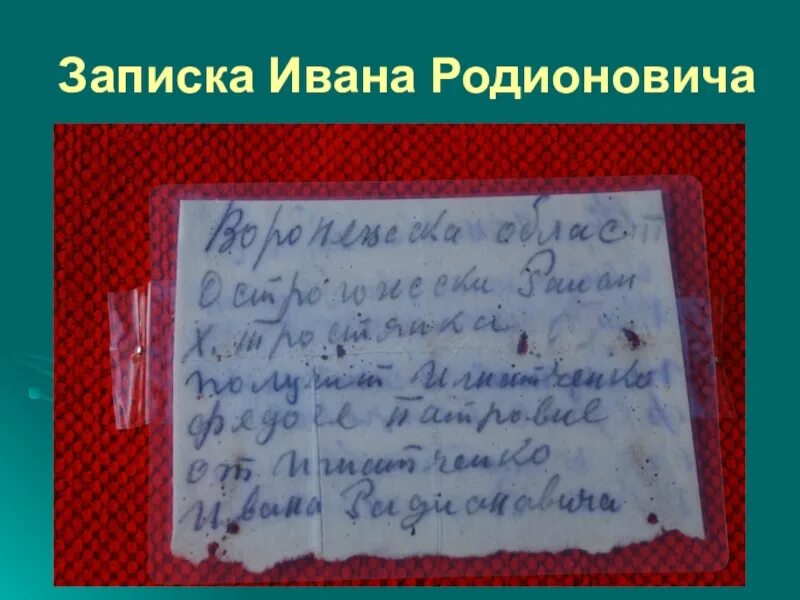 Записка Ивана Родионовича
Воронежска област
Острогожски Раион
х. тростянка
получит Игнатченко
федосе Патровне
от Игнатченко
Ивана Радиановича